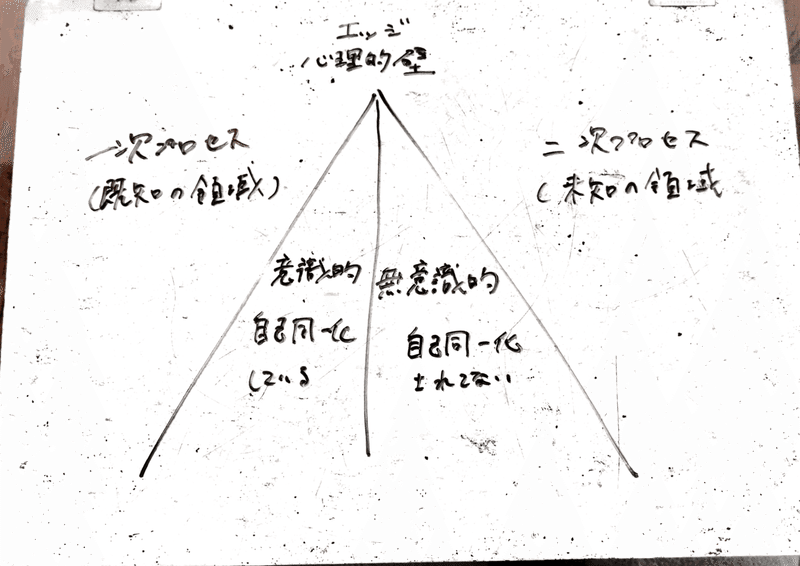 エッジ
心理的壁
一次プロセス
(既知の領域)
二次プロセス
(未知の領域
意識的
自己同一化
している
無意識的
自己同一化
されてない